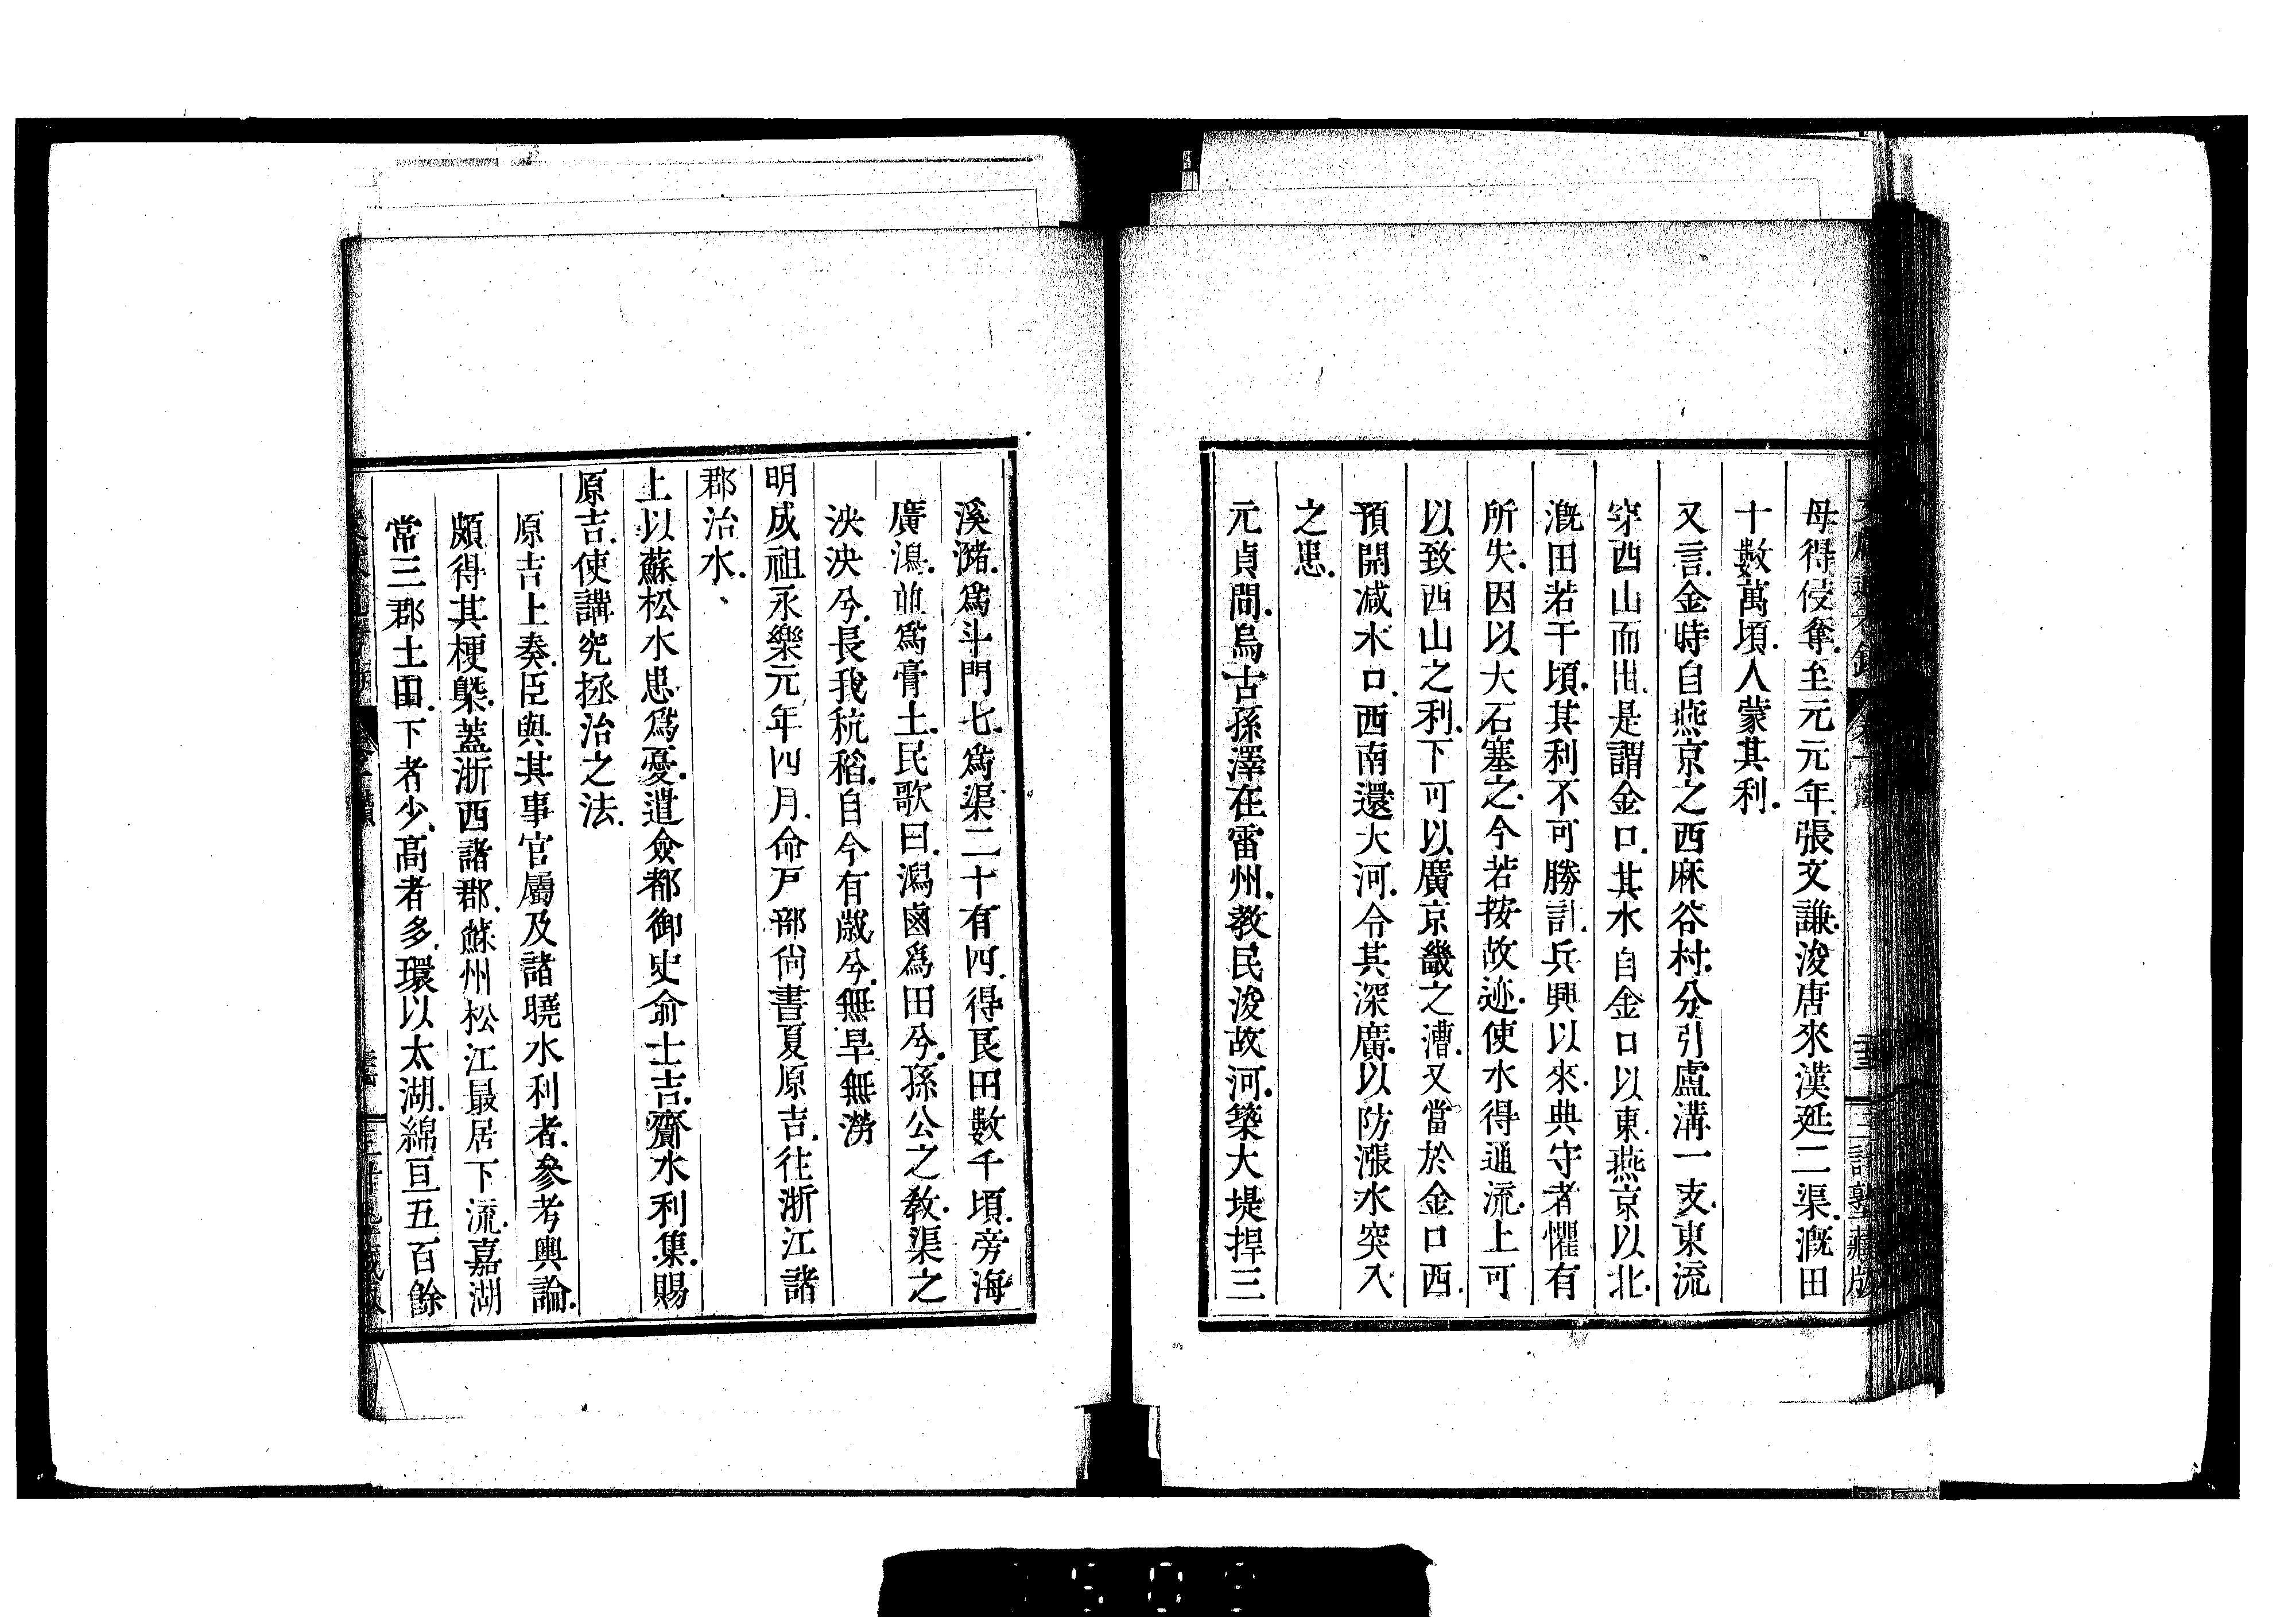 毋得侵奪.至元元年張文謙.浚唐來漢延二渠.溉田
十數萬頃.人蒙其利.
又言.金時自燕京之西麻谷村.分引盧溝一支.東流
穿西山而出.是謂金口.其水自金口以東.燕京以北.
溉田若干頃.其利不可勝計.兵興以來.典守者懼有
所失.因以大石塞之.今若按故迹.使水得通流.上可
以致西山之利.下可以廣京畿之漕.又當於金口西.
預開減水口.西南還大河.令其深廣.以防漲水突入
之患.
元貞間.烏古孫澤在雷州.教民浚故河.築大堤捍三
溪瀦.爲斗門七.爲渠二十有四.得良田數千頃.旁海
廣潟.並爲膏土.民歌曰.潟鹵爲田兮.孫公之教.渠之
泱泱兮.長我秔稻.自今有歲兮.無旱無澇
明成祖永樂元年四月.命戸部尙書夏原吉.往浙江諸
郡治水.
上以蘇松水患爲憂.遣僉都御史俞士吉.齎水利集.賜
原吉.使講究拯治之法.
原吉上奏.臣與其事官屬及諸曉水利者.參考輿論.
頗得其梗槩.蓋浙西諸郡.蘇州松江最居下流.嘉湖
常三郡土田.下者少.高者多.環以太湖.綿亘五百餘